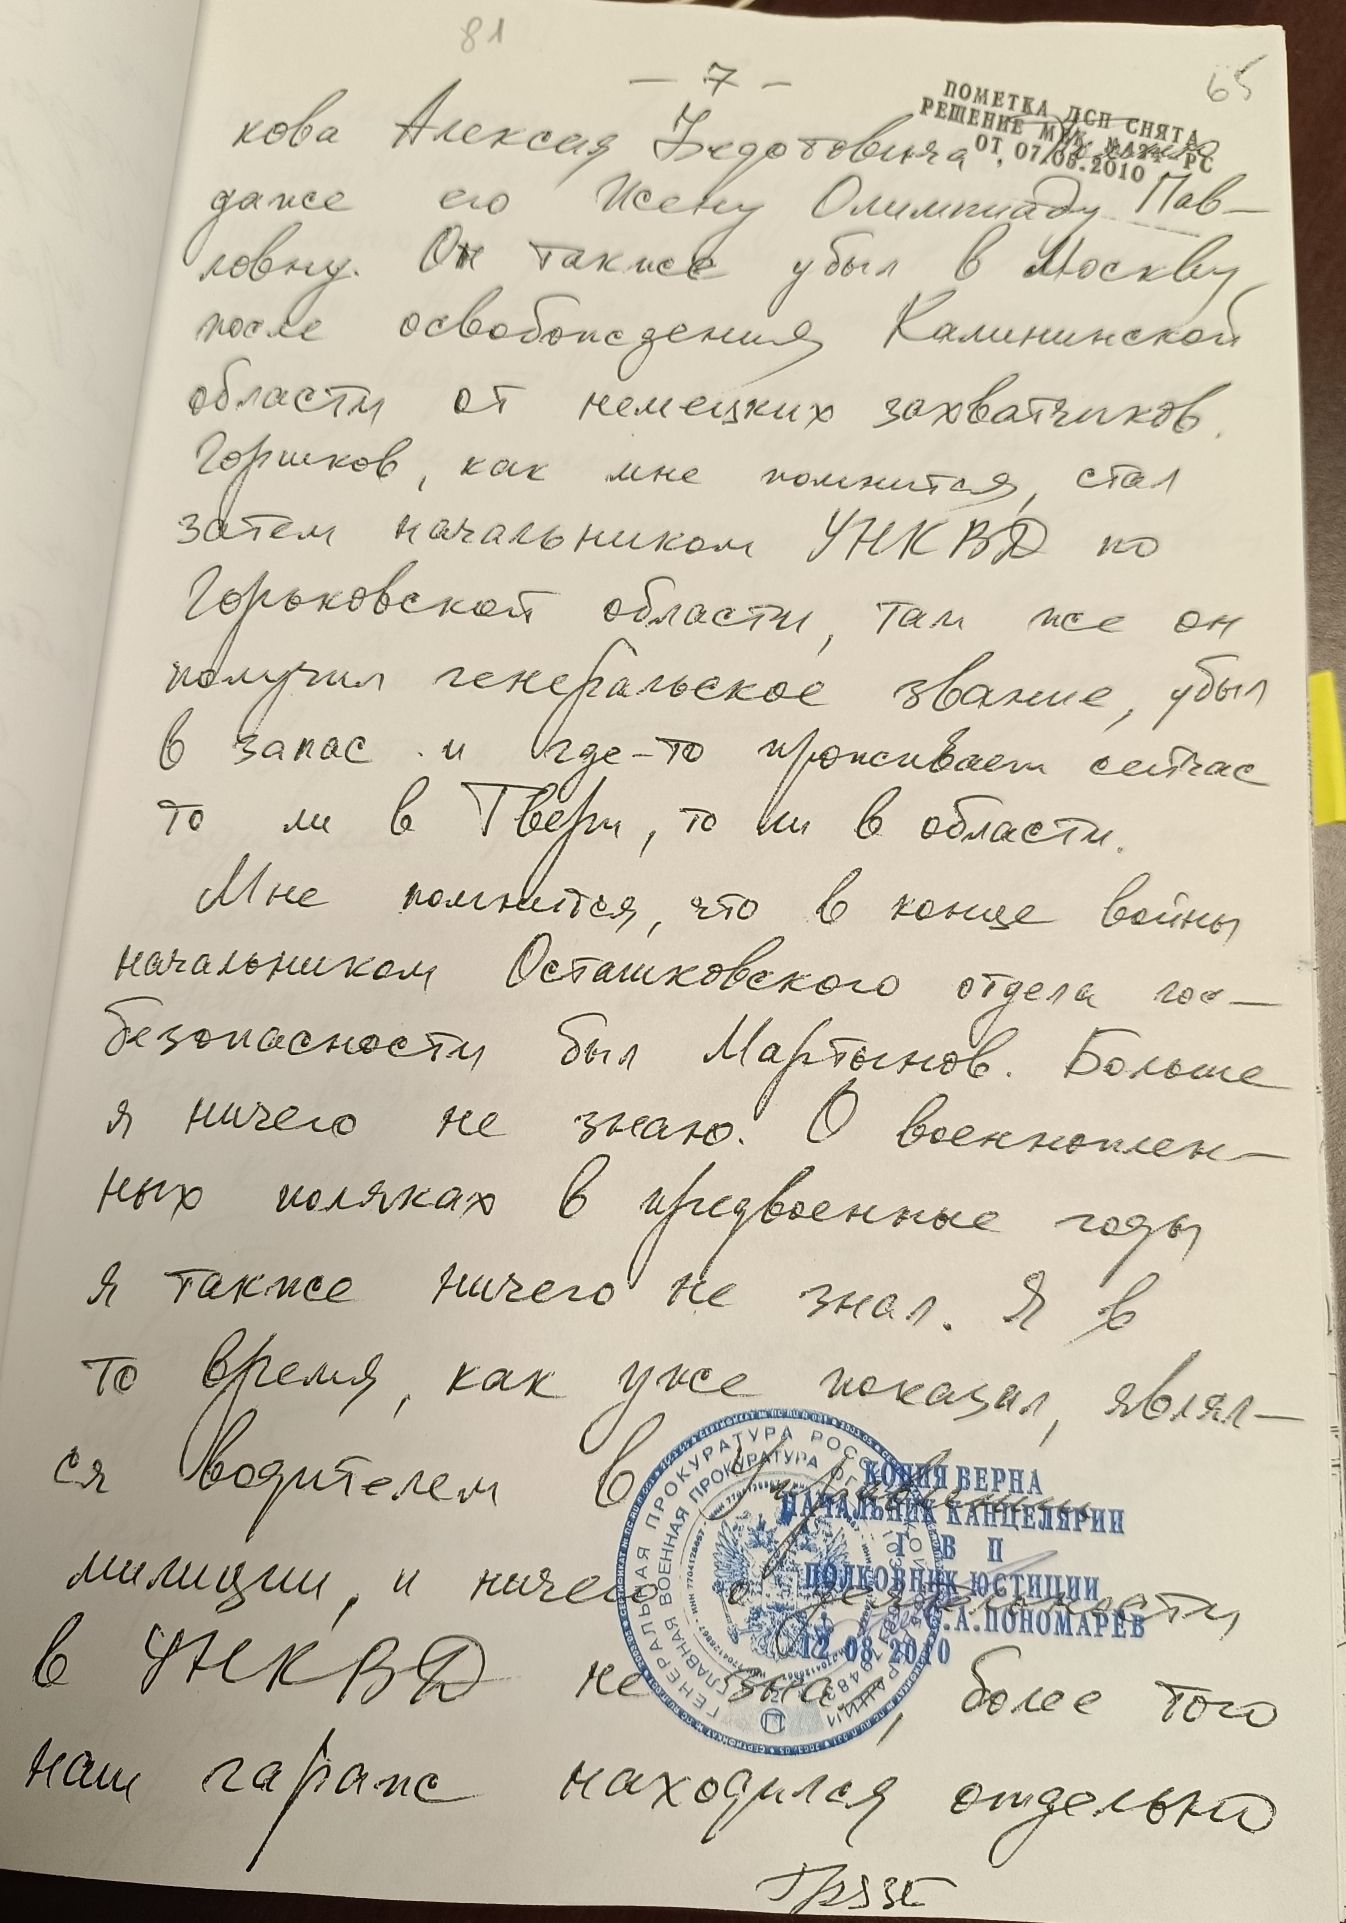 81
- 7 -
65
ПОМЕТКА ДСП СНЯТА
РЕШЕНИЕ МВК №
ОТ 07.08.2010
кова Алексея Федотовича,
даже его жену Олимпиаду Пав-
ловну. Он также убыл в Москву
после освобождения Калининской
области от немецких захватчиков.
Горшков, как мне помнится, стал
затем начальником УНКВД по
Горьковской области, там же он
получил генеральское звание, убыл
в запас и где-то проживает сейчас
то ли в Твери, то ли в области.
Мне помнится, что в конце войны
начальником Осташковского отдела гос-
безопасности был Мартынов. Больше
я ничего не знаю. О военноплен-
ных поляках в предвоенные годы
я также ничего не знал. Я в
то время, как уже показал, являл-
ся водителем в Управлении
милиции, и ничего о деятельности
в УНКВД не знал, более того
наш гараж находился отдельно
КОПИЯ ВЕРНА
НАЧАЛЬНИК КАНЦЕЛЯРИИ
Г В П
ПОЛКОВНИК ЮСТИЦИИ
С.А.ПОНОМАРЕВ
12 08 2010
ГЕНЕРАЛЬНАЯ ПРОКУРАТУРА
ГЛАВНАЯ ВОЕННАЯ ПРОКУРАТУРА